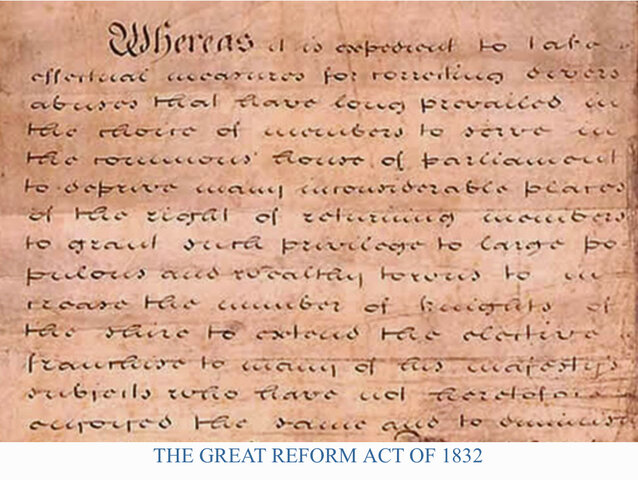 Whereas it is expedient to take
effectual measures for correcting divers
abuses that have long prevailed in
the choice of members to serve in
the commons house of parliament
to deprive many inconsiderable places
of the right of returning members
to grant such privilege to large po
pulous and wealthy towns to in
crease the number of knights of
the shire to extend the elective
franchise to many of his majestys
subjects who have not heretofore
enjoyed the same and to diminish
THE GREAT REFORM ACT OF 1832